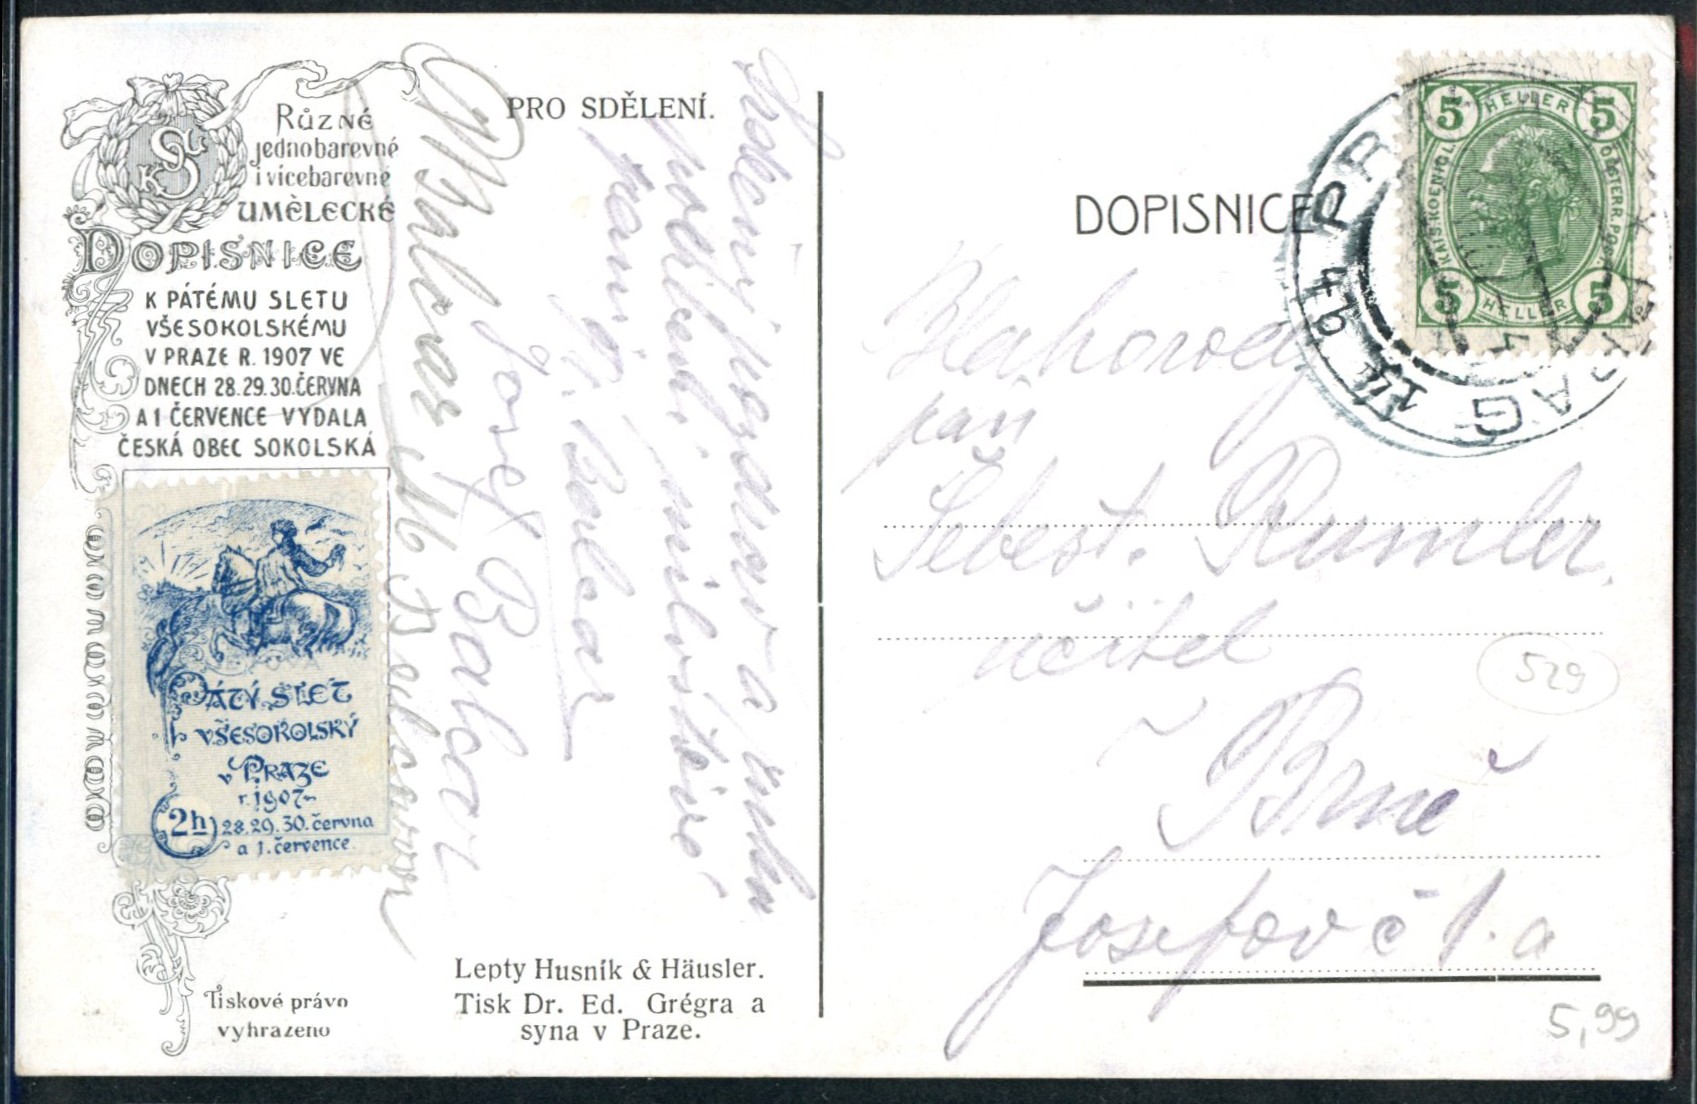 Různé
jednobarevné
i vícebarevné
UMĚLECKÉ
DOPISNICE
K PÁTÉMU SLETU
VŠESOKOLSKÉMU
V PRAZE R. 1907 VE
DNECH 28.29.30.ČERVNA
A 1 ČERVENCE VYDALA
ČESKÁ OBEC SOKOLSKÁ
PÁTÝ SLET
VŠESOKOLSKÝ
v PRAZE
r. 1907
2h 28.29.30. června
a 1. července
Tiskové právo
vyhrazeno
PRO SDĚLENÍ.
Srdečný pozdrav a
milostivé
paní
Josef Bolcar
Lepty Husník & Häusler.
Tisk Dr. Ed. Grégra a
syna v Praze.
DOPISNICE
5 HELLER 5
5 HELLER 5
PRAG
Blahorodý
pan
Šebest. Rumler
učitel
v Brně
Josefov č 1. a
529
5,99